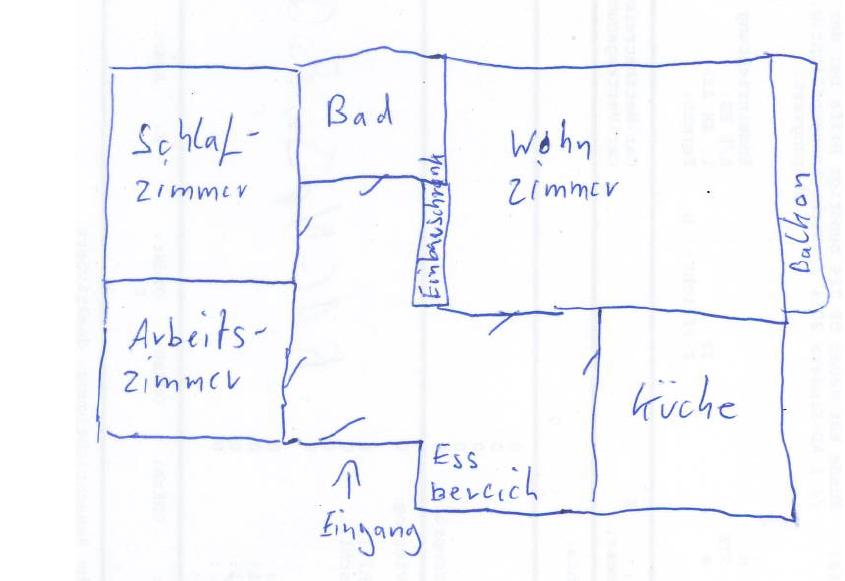 Schlaf-
zimmer
Bad
Wohn
zimmer
Balkon
Einbauschrank
Arbeits-
zimmer
Küche
Ess
bereich
Eingang